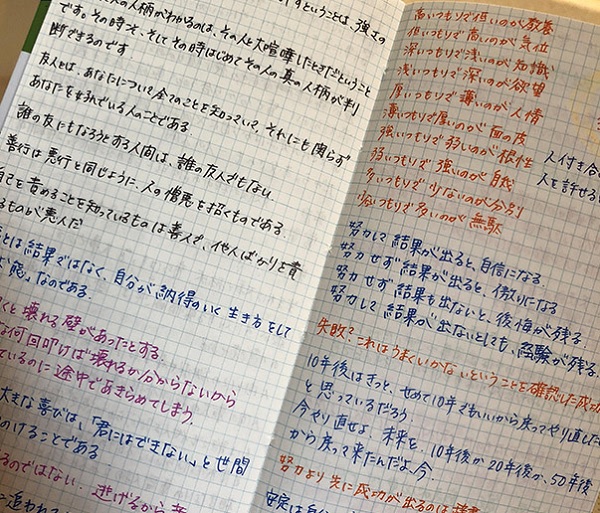 人柄がわかるのは、その人と大喧嘩したときだということ
です。その時こそ、そしてその時はじめてその人の真の人柄が判
断できるのです
友人とは、あなたについて全てのことを知っていて、それにも関らず
あなたを好んでいる人のことである
誰の友にもなろうとする人間は、誰の友人でもない
善行は悪行と同じように、人の憎悪を招くものである
自己を責めることを知っているものは善人で、他人ばかりを責
るものが悪人だ
とは結果ではなく、自分が納得のいく生き方をして
態、なのである
くと壊れる壁があったとする
何回叩けば壊れるか分からないから
ているのに途中であきらめてしまう
大きな喜びは、「君にはできない」と世間
のけることである
るのではない、逃げるから
追われる
高いつもりで低いのが教養
低いつもりで高いのが気位
深いつもりで浅いのが知識
浅いつもりで深いのが欲望
厚いつもりで薄いのが人情
薄いつもりで厚いのが面の皮
強いつもりで弱いのが根性
弱いつもりで強いのが自我
多いつもりで少ないのが分別
少いつもりで多いのが無駄
努力して結果が出ると、自信になる
努力せず結果が出ると、傲りになる
努力せず結果も出ないと、後悔が残る
努力して結果が出ないとしても、経験が残る
失敗?これはうまくいかないということを確認した成功
10年後はきっと、せめて10年でもいいから戻ってやり直したい
と思っているだろう
今やり直せよ、未来を。10年後か20年後か、50年後
から戻って来たんだよ、今
努力より先に成功が出るのは辞書
安定は
人付き合
人を許せる